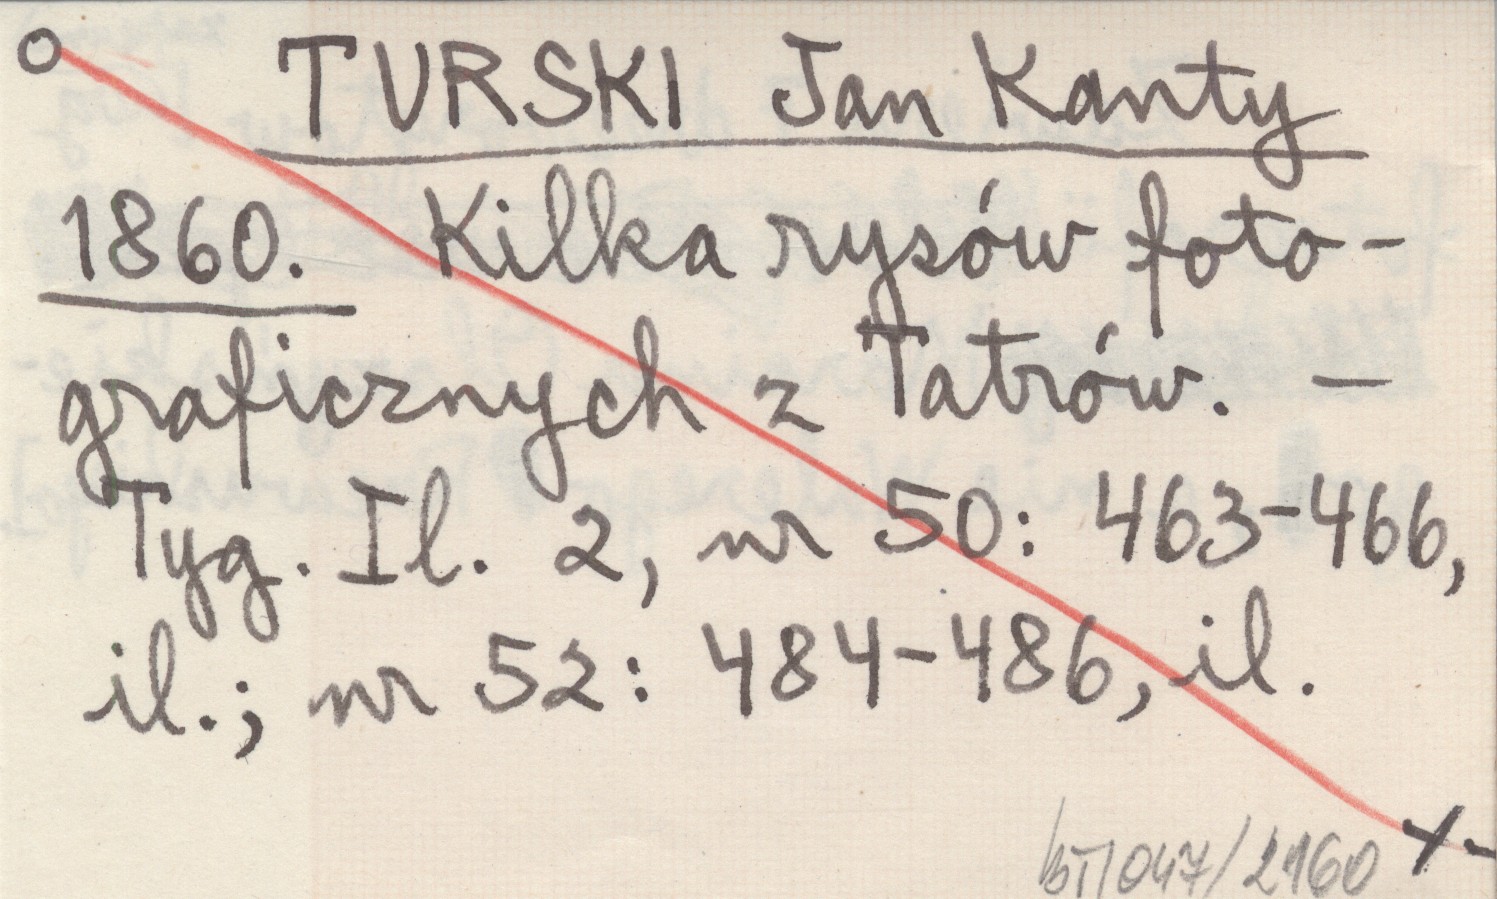 TURSKI Jan Kanty
1860. Kilka rysów foto-
graficznych z Tatrów. —
Tyg. Il. 2, nr 50: 463-466,
il.; nr 52: 484-486, il.
/047/2160